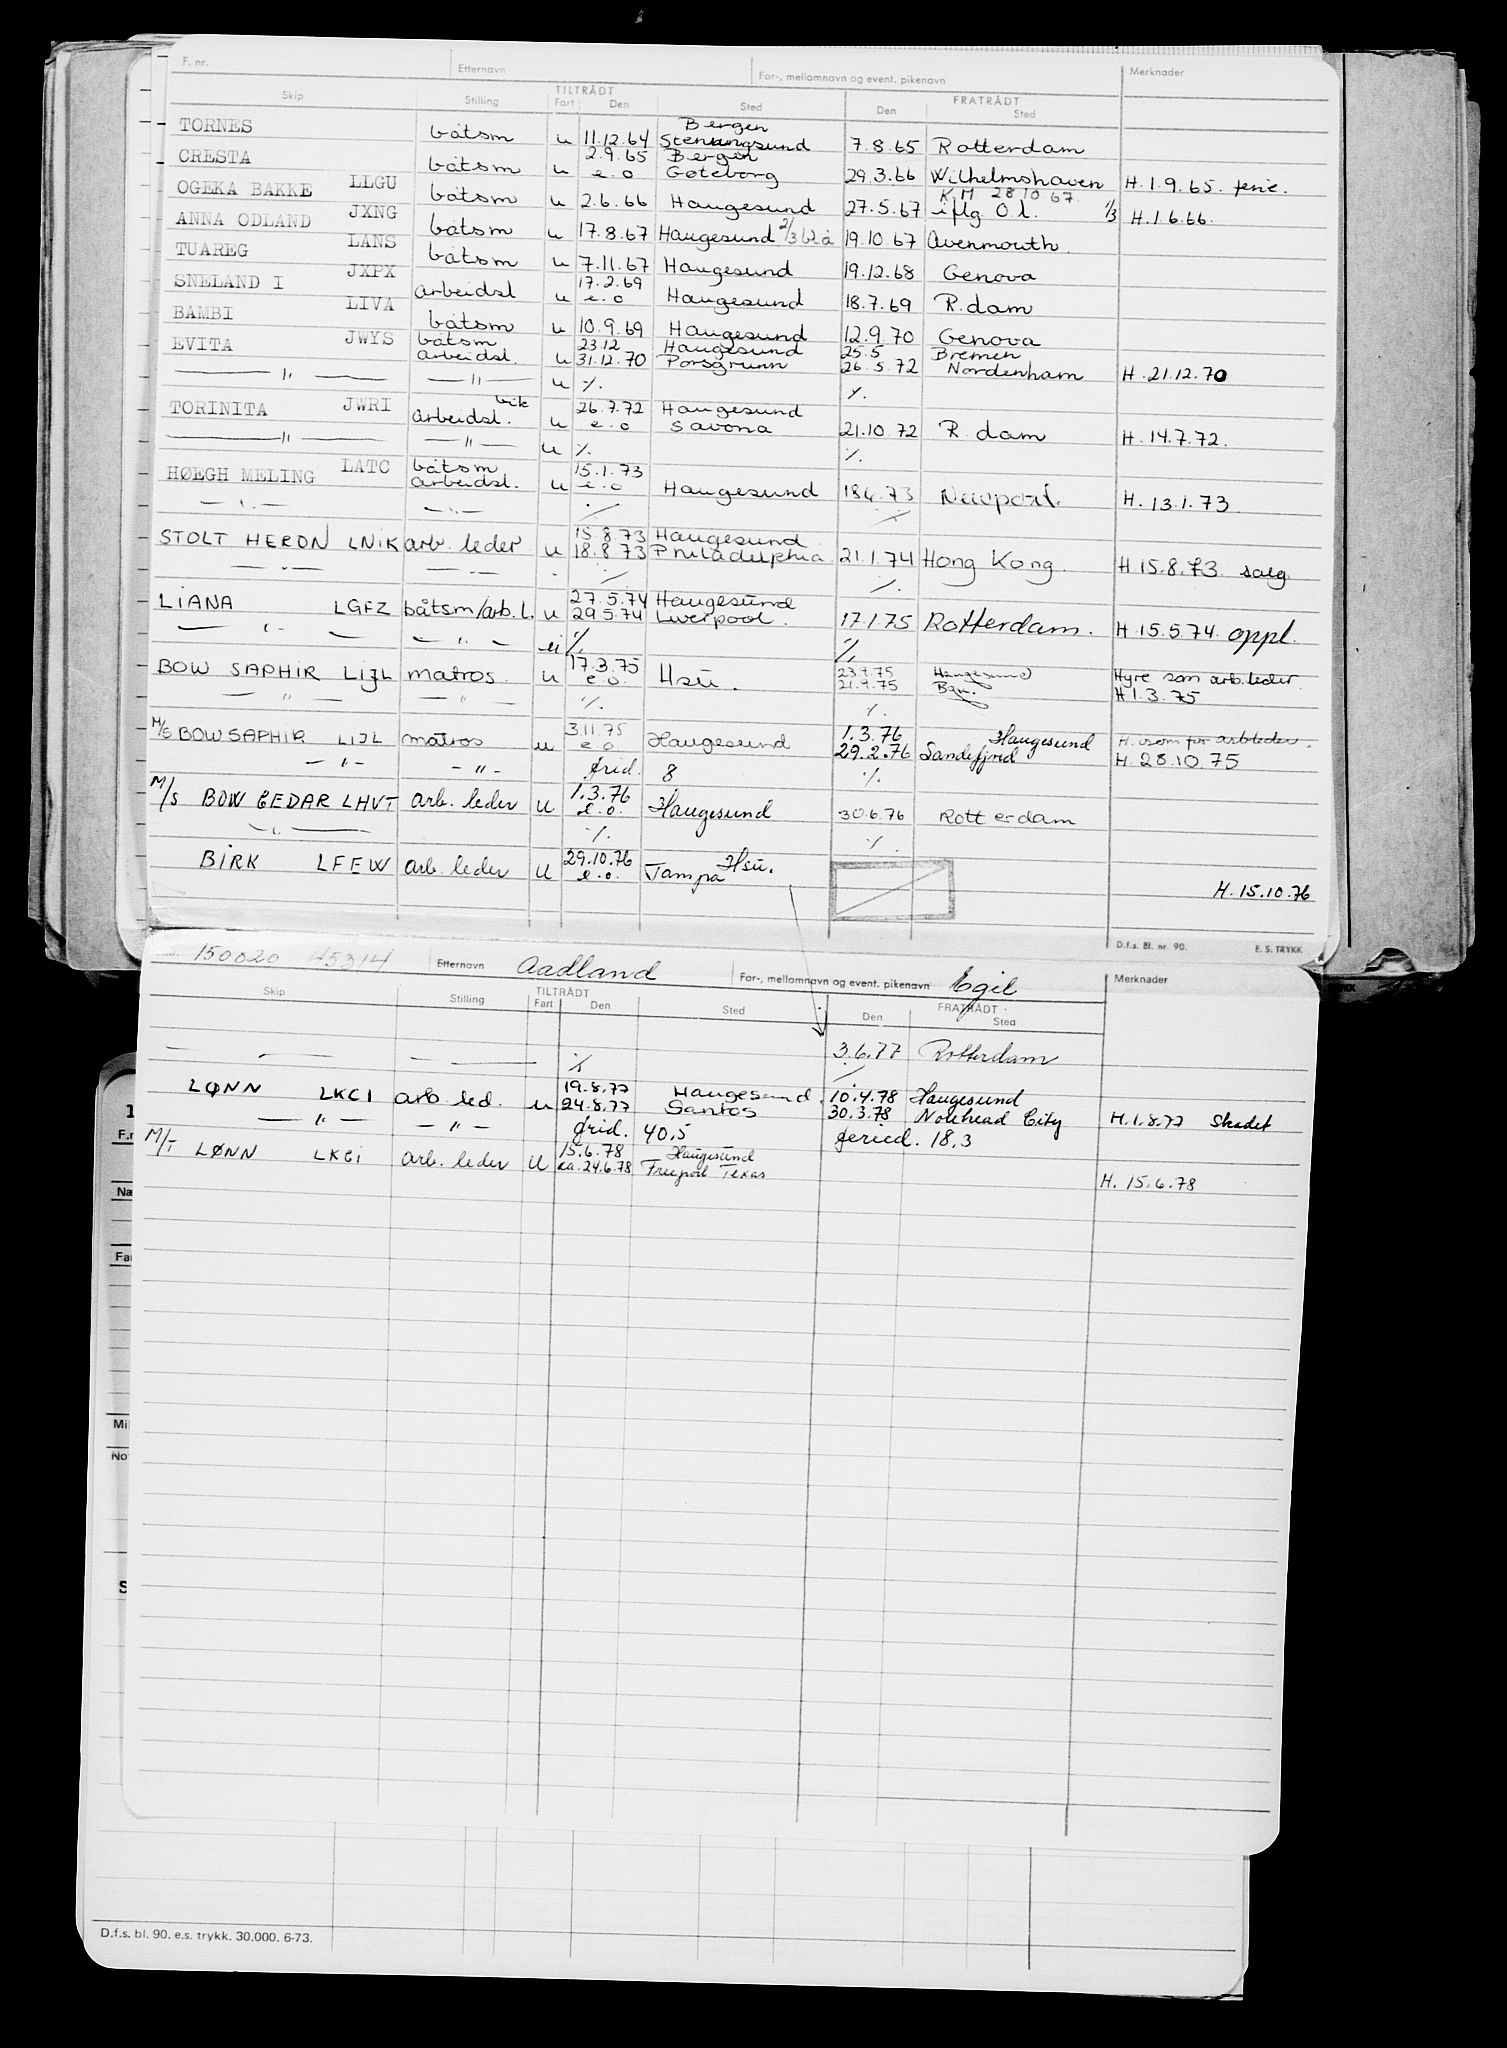 F. nr. Etternavn For-, mellomnavn og event. pikenavn Merknader
Skip Stilling TILTRÅDT Fart Den Sted FRATRÅDT Den Sted
TORNES båtsm u 11.12.64 Bergen Stenungsund 7.8.65 Rotterdam
CRESTA båtsm u 2.9.65 e.o Bergen Gøteborg 29.3.66 Wilhelmshaven H.1.9.65. ferie.
OGEKA BAKKE LLGU båtsm u 2.6.66 Haugesund 27.5.67 K.M 28 10 67. iflg O.l. 1/3 H.1.6.66.
ANNA ODLAND JXNG båtsm u 17.8.67 Haugesund 2/3 blå 19.10.67 Avenmouth
TUAREG LANS båtsm u 7.11.67 Haugesund 19.12.68 Genova
SNELAND I JXPX arbeidsl u 17.2.69 e.o Haugesund 18.7.69 R.dam
BAMBI LIVA båtsm u 10.9.69 Haugesund 12.9.70 Genova
EVITA JWYS båtsm 23.12 Haugesund 25.5 Bremen
arbeidsl. u 31.12.70 Porsgrunn 26.5.72 Nordenham H.21.12.70
— " — — " — u ·/. ·/.
TORINITA JWRI båtsm arbeidsl. u 26.7.72 e.o Haugesund Savona 21.10.72 R.dam H.14.7.72.
— " — — " — u ·/. ·/.
HØEGH MELING LATC båtsm arbeidsl. u 15.1.73 e.o Haugesund 18.4.73 Newport. H.13.1.73
— " — — " — ·/. ·/.
STOLT HERON LNIK arb. leder u 15.8.73 Haugesund
18.8.73 Philadelphia. 21.1.74 Hong Kong. H 15.8.73. salg
— " — — " — ·/. ·/.
LIANA LGFZ båtsm/arb.l. u 27.5.74 Haugesund
29.5.74 Liverpool. 17.1.75 Rotterdam. H.15.5.74. oppl.
— " — — " — u ·/. ·/.
BOW SAPHIR LIJL matros. u 17.3.75 e.o. Hsu. 23.9.75 Haugesund Hyre som arb.leder.
21.9.75 Bgn. H 1.3.75
— " — — " — ·/. ·/.
M/S BOW SAPHIR LIJL matros u 3.11.75 e.o Haugesund 1.3.76 Haugesund H. som for arbleder.
29.2.76 Sandefjord H. 28.10.75
— " — — " — frid. 8 ·/.
M/S BOW CEDAR LHVT arb. leder u 1.3.76 e.o. Haugesund 30.6.76 Rotterdam
— " — ·/. ·/.
BIRK LFEW arb. leder u 29.10.76 e.o. Hsu. Tampa H.15.10.76
D.f.s. Bl. nr. 90. E. S. TRYKK
150020 45314 Etternavn Aadland For-, mellomnavn og event. pikenavn Egil Merknader
Skip Stilling TILTRÅDT Fart Den Sted FRATRÅDT Den Sted
— " — ·/. 3.6.77 Rotterdam
LØNN LKCI arb led. u 19.8.77 Haugesund. 10.4.78 Haugesund
24.8.77 Santos 30.3.78 Norehead City H.1.8.77 Skadet
— " — — " — frid. 40,5 feried. 18,3
M/T LØNN LKCI arb. leder u 15.6.78 Haugesund
ca. 24.6.78 Freeport Texas H. 15.6.78
1
F.n
Næ
Fa
Mi
No
S
D.f.s. bl. 90. e.s. trykk. 30.000. 6-73.